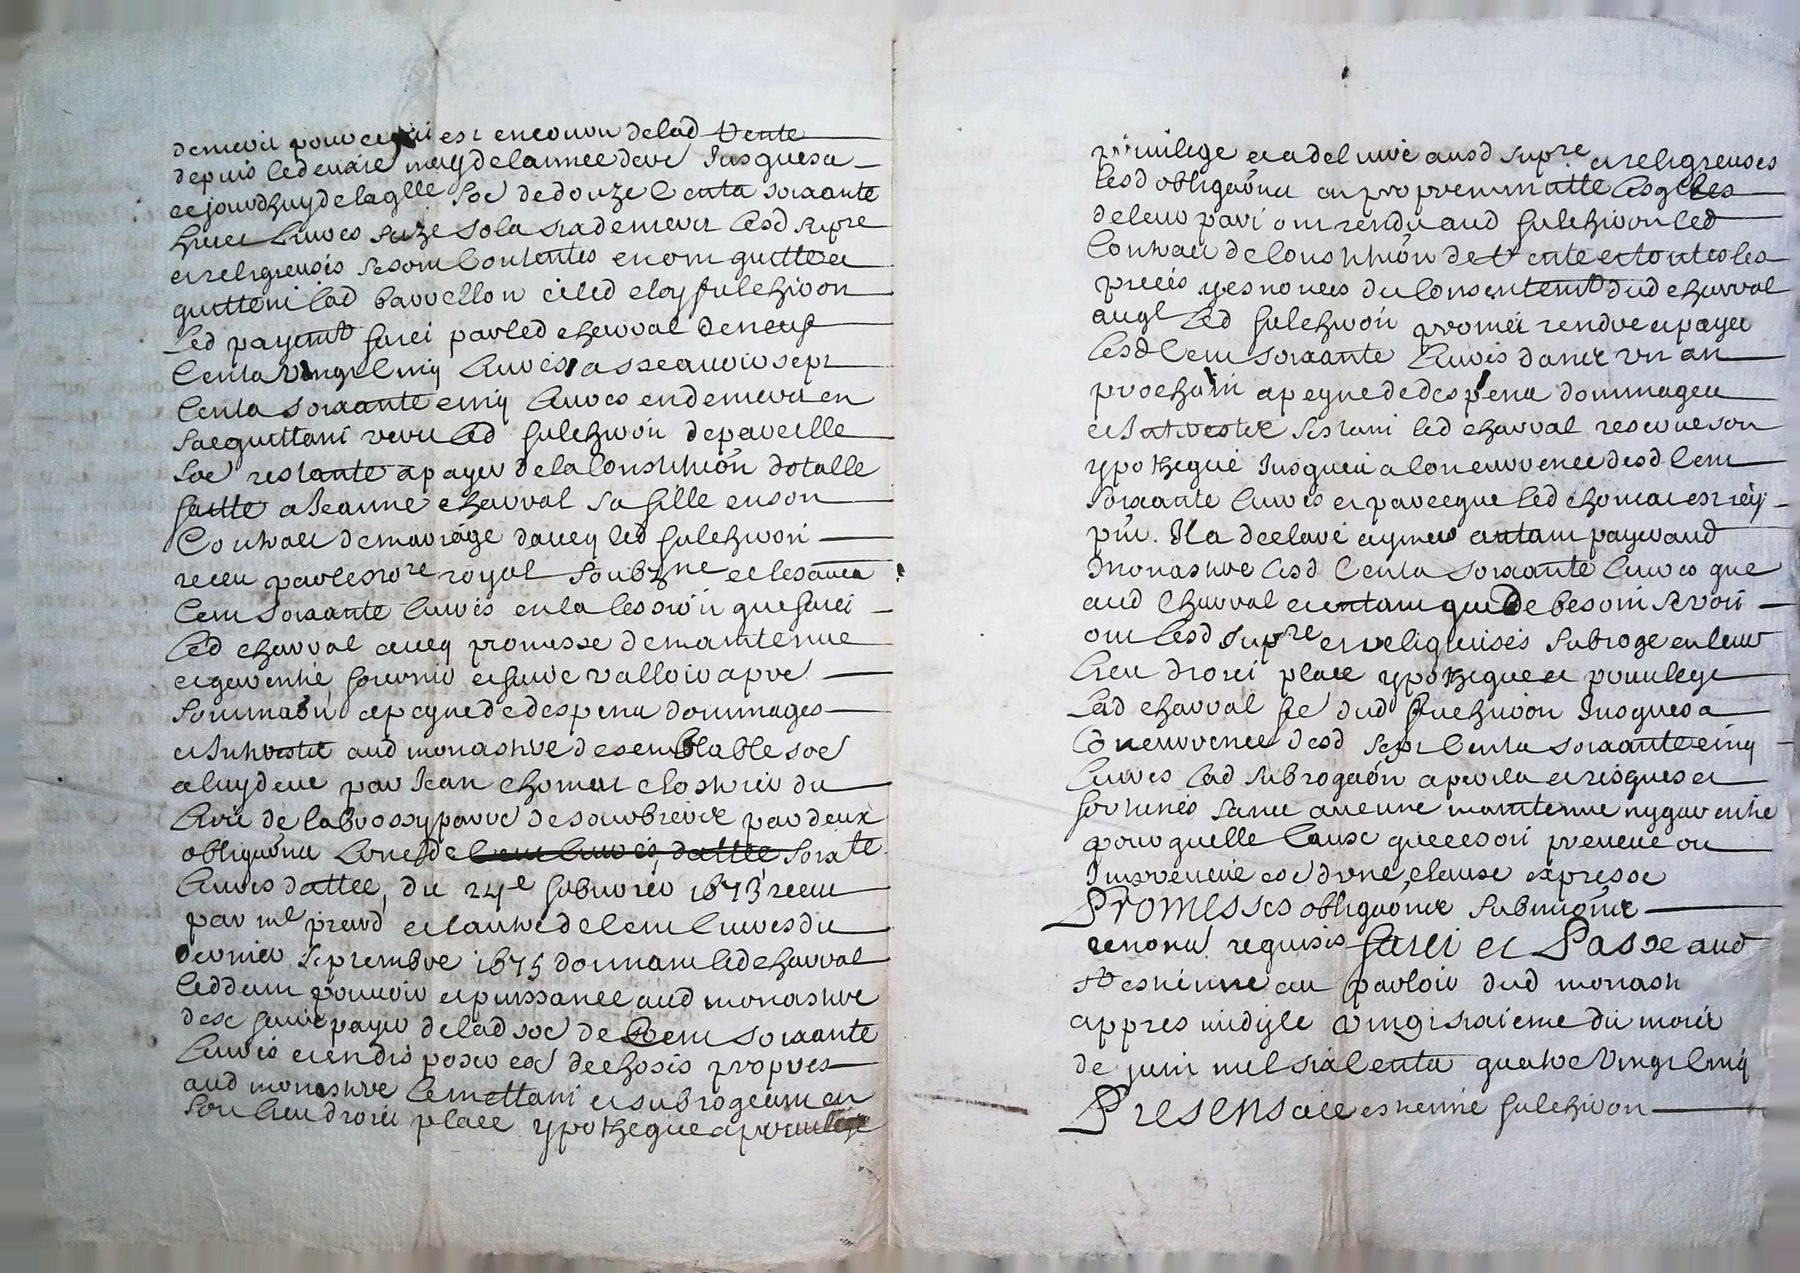 demeure pour ce qui est encouru de lad vente
depuis le dernier may de lannee der Jusques a
ce jourdhuy de laqlle soe de douze Cents soixante
huict livres seize sols six deniers lesd supre
et religieuses se sont Contentes en ont quitte et
quittent lad et led eloy fulchiron
Led payemt faict par led charval de neuf
Cents vingt Cinq livres a sscavoir sept
Cents soixante cinq livres en deniers en
sacquittant vers led fulchiron de pareille
soe restante a payer de la Constitution dotalle
faitte a Jeanne charval sa fille en son
Contract de mariage avecq led fulchiron
receu par le nore royal soubzne et les autres
Cent soixante livres en la Cession que faict
led charval avecq promesse de maintenue
et garentie fournir et faire valloir apres
sommaon a peyne de despens dommages
et Intherestz aud monastere de semblable soe
a luy deue par Jean chomat clostrier du
lieu de la brossy parre de sorbiere par deux
obligaons Lune de Cent livres dattee soixte
livres dattee du 24e febvrier 1673 receu
par me prard et lautre de Cent livres du
dernier septembre 1675 donnant led charval
ceddant pouvoir et puissance aud monastere
de se faire payer de lad soe de Cent soixante
livres et en disposer Coe de choses propres
aud monastere le mettant et subrogeant en
son lieu droict place ypotheque et privilege
privilege et a delivre ausd supre et religieuses
lesd obligaons en propre minutte lesqles
de leur part ont rendu aud fulchiron led
Contract de Constitution de vente et toutes les
pieces y esnoncees du Consentemt dud charval
auql led fulchiron promet rendre et payer
lesd Cent soixante livres dans un an
prochain a peyne de despens dommages
et Intherestz restant led charval reserve son
ypotheque Jusques a la Concurrence desd Cent
soixante livres et parce que led chomat est
Il a declare aymer autant payer aud
monastere lesd Cents soixante livres que
aud charval et entant que de besoin seroit
ont lesd supre et religieuses subroge en leur
lieu droict place ypotheque et privilege
Led charval dud fulchiron Jusques a
Concurrence desd sept Cents soixante cinq
livres lad subrogaon a perils et risques et
fortunes sans aucune maintenue ny garentie
pour quelle Cause que ce soit preveue ou
Impreveue coe dune clause expresse
Promesses obligaons submissions
renons requises faict et Passe aud
St estienne au parloir dud monast
appres midy le vingt sixieme du mois
de juin mil six Cents quatre Vingt Cinq
Presens a ce estienne fulchiron